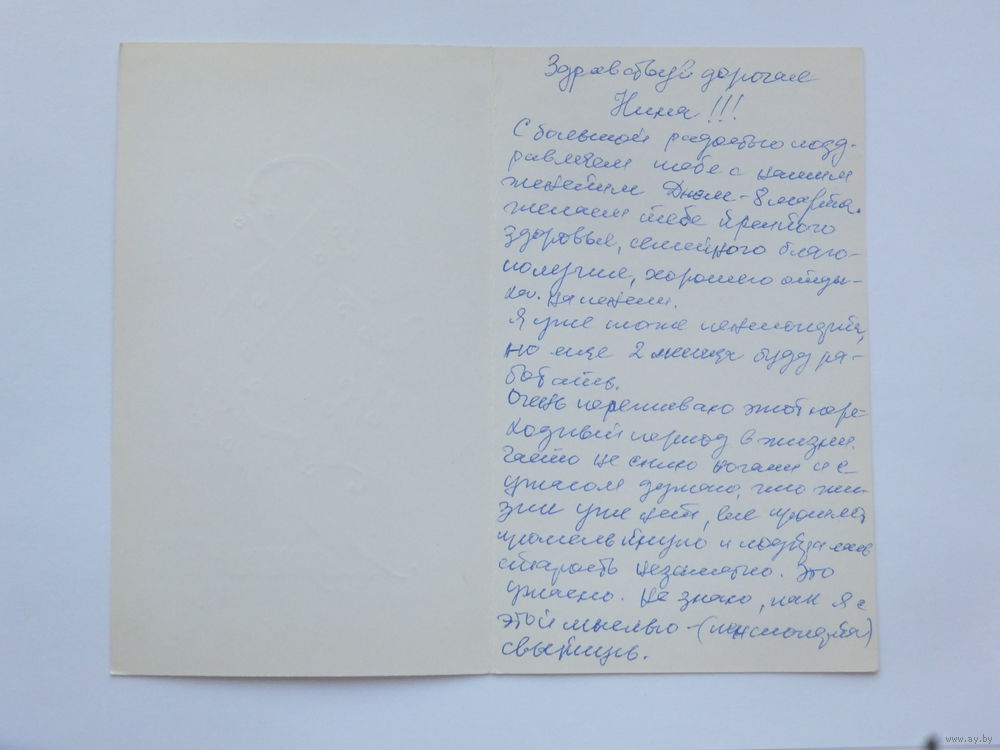 Здравствуй дорогая
Нина!!!
С большой радостью позд-
равляем тебя с нашим
женским Днем - 8 марта.
желаем тебе крепкого
здоровья, семейного благо-
получия, хорошего отды-
ха. на пенсии.
Я уже тоже пенсионерка,
но еще 2 месяца буду ра-
ботать.
Очень переживаю этот пере-
ходный период в жизни.
Часто не сплю ночами и с
ужасом думаю, что жи-
зни уже нет, все прошло,
промелькнуло и подкралась
старость незаметно. Это
ужасно. Не знаю, как я с
этой мыслью - (пенсионерка)
свыкнусь.
www.ay.by